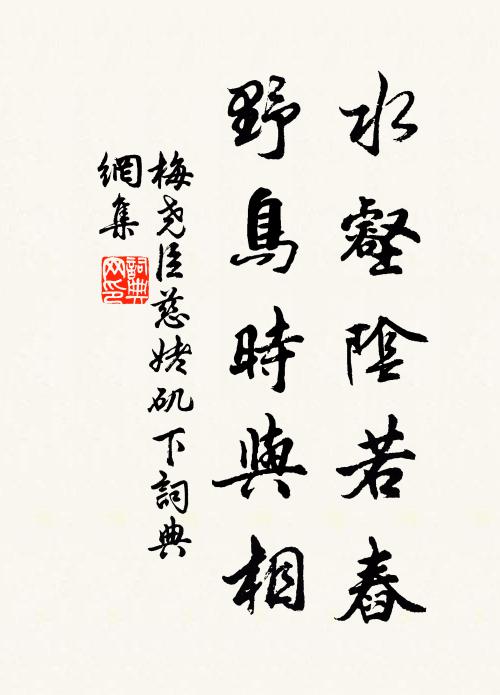 水壑陰若舂
野鳥時與相
梅尧臣慈姥矶下詞典
網集
詞典
网印